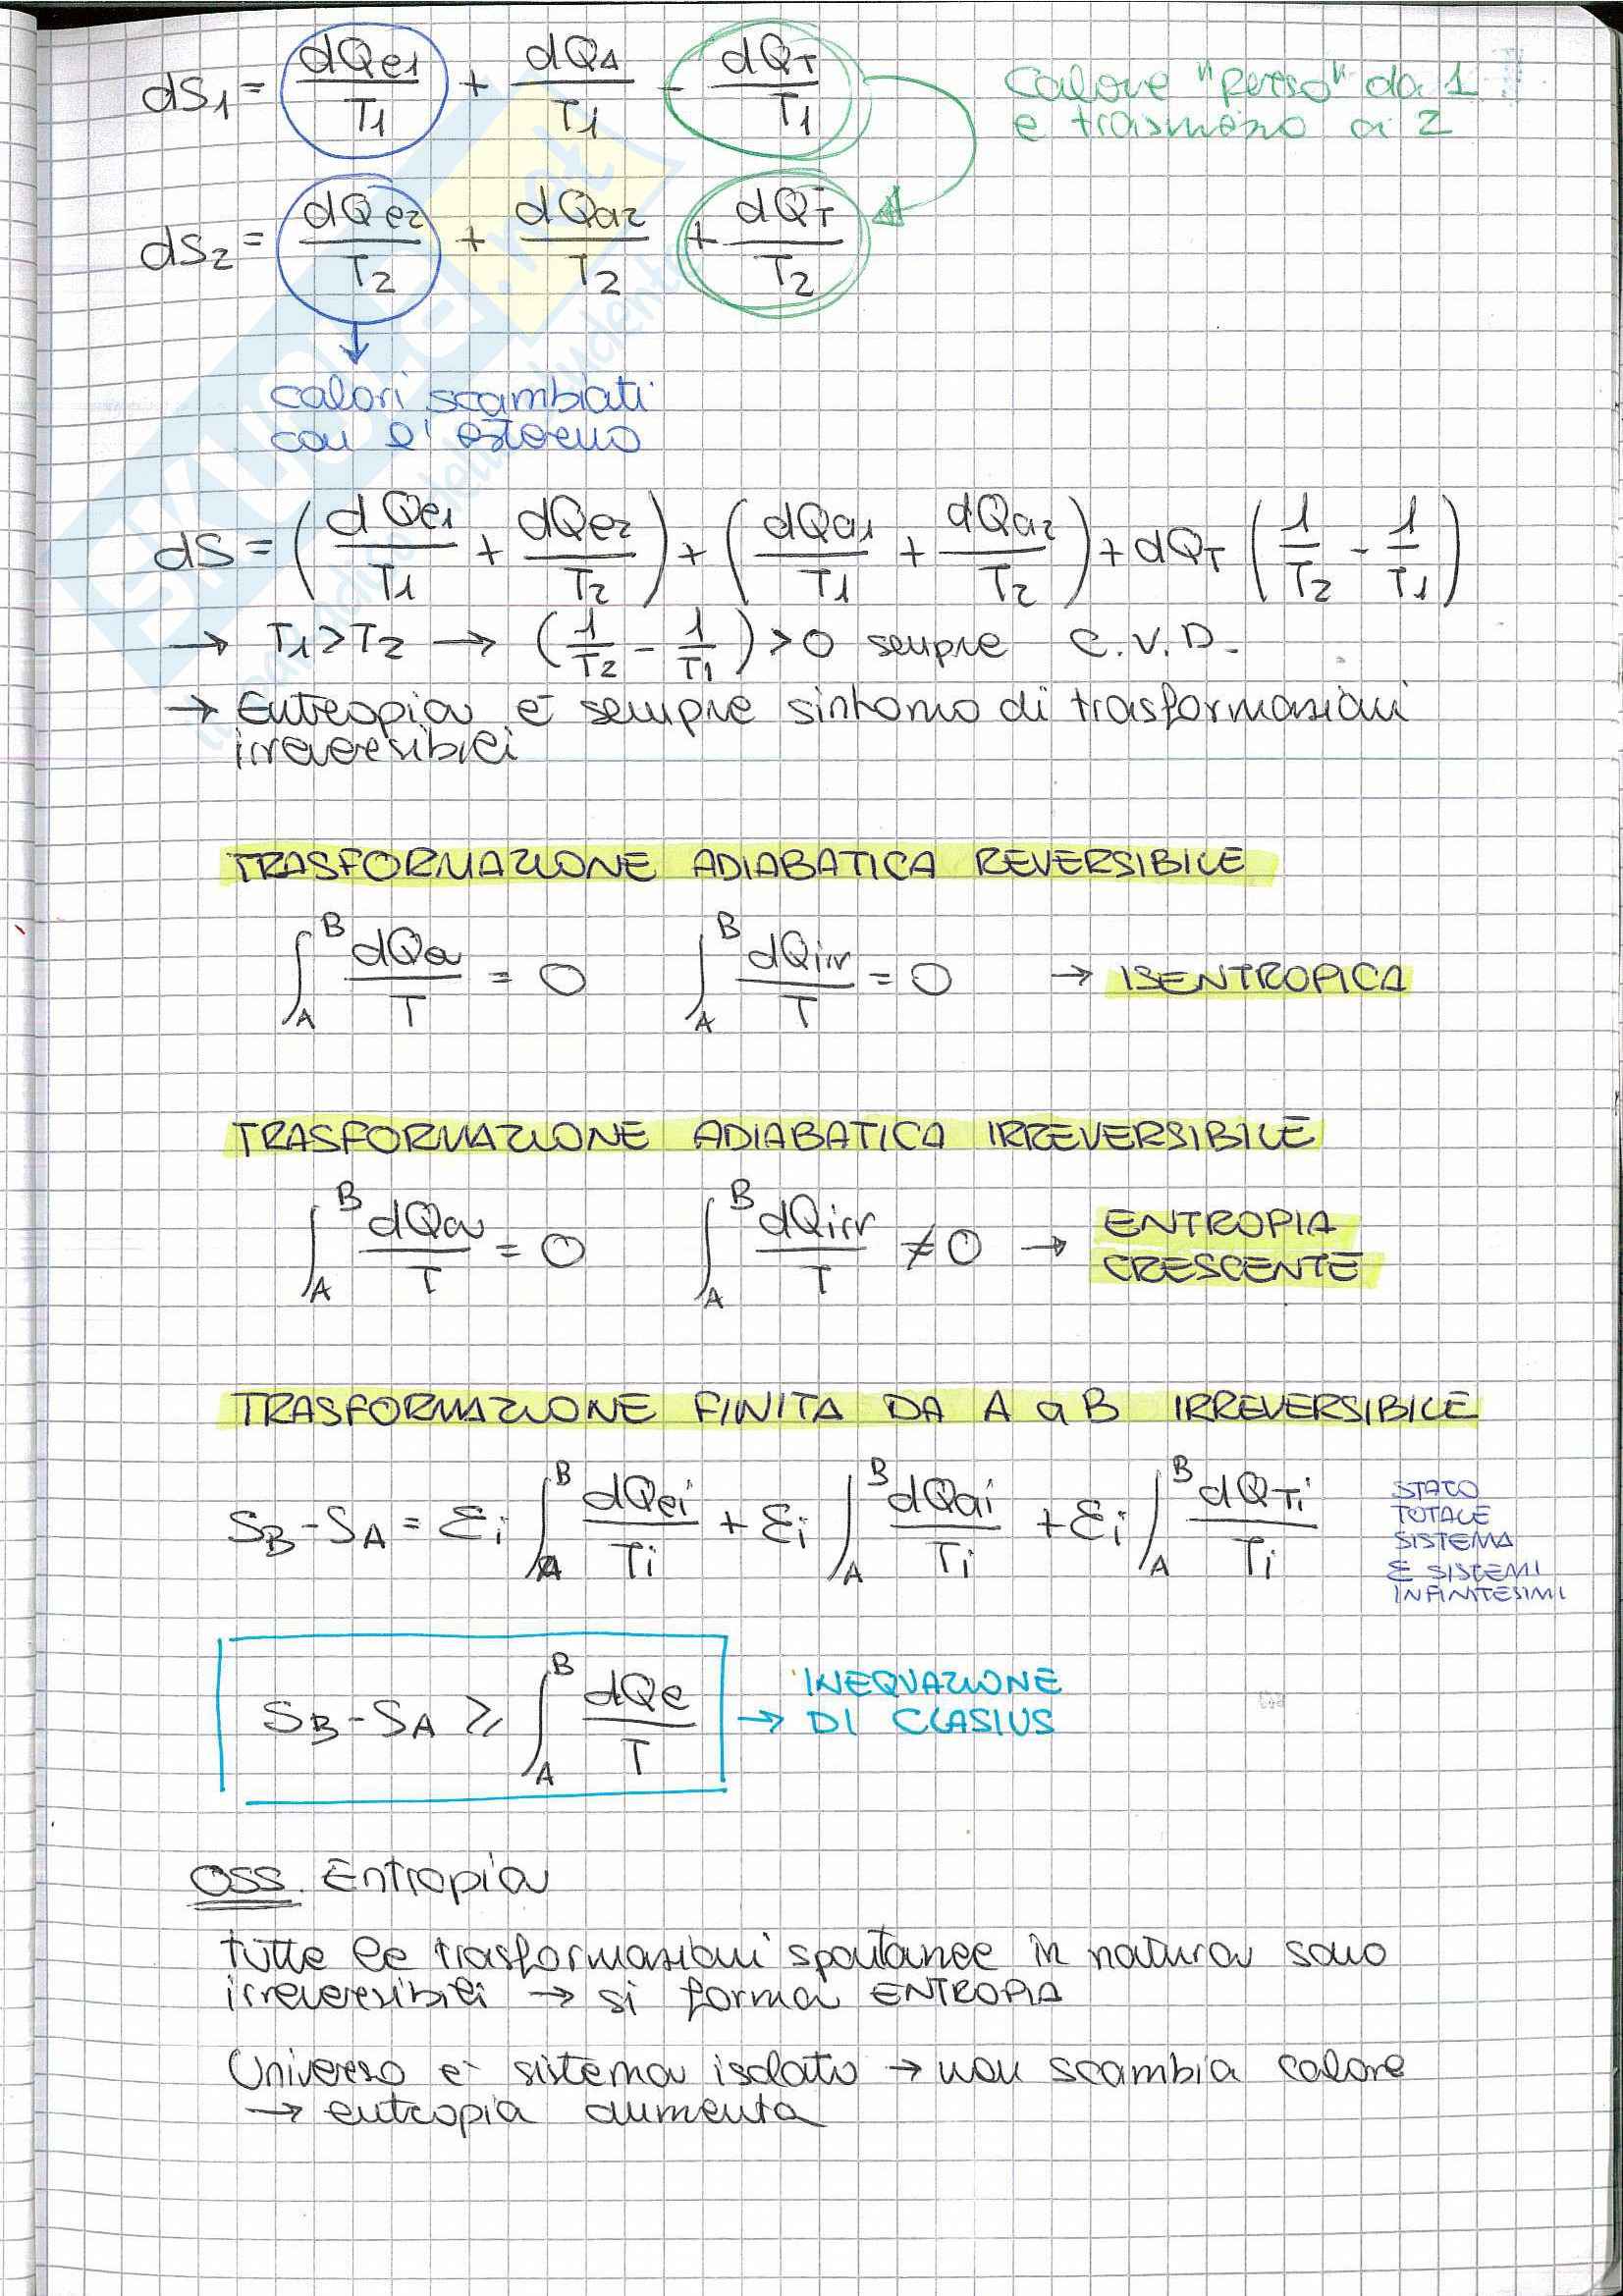 dS1 = dQe1/T1 + dQA/T1 - dQT/T1
Calore "perso" da 1
e trasmesso a 2
dS2 = dQe2/T2 + dQa2/T2 + dQT/T2
calori scambiati
con l'esterno
dS = (dQe1/T1 + dQe2/T2) + (dQa1/T1 + dQa2/T2) + dQT (1/T2 - 1/T1)
→ T1 > T2 → (1/T2 - 1/T1) > 0 sempre C.V.D.
→ Entropia è sempre sintomo di trasformazioni
irreversibili
TRASFORMAZIONE ADIABATICA REVERSIBILE
∫_A^B dQa/T = 0 ∫_A^B dQirr/T = 0 → ISENTROPICA
TRASFORMAZIONE ADIABATICA IRREVERSIBILE
∫_A^B dQa/T = 0 ∫_A^B dQirr/T ≠ 0 → ENTROPIA
CRESCENTE
TRASFORMAZIONE FINITA DA A a B IRREVERSIBILE
SB - SA = Σi ∫_A^B dQei/Ti + Σi ∫_A^B dQai/Ti + Σi ∫_A^B dQTi/Ti
STATO
TOTALE
SISTEMA
Σ SISTEMI
INFINITESIMI
SB - SA ≥ ∫_A^B dQe/T → INEQUAZIONE
DI CLASIUS
OSS. Entropia
tutte le trasformazioni spontanee in natura sono
irreversibili → si forma ENTROPIA
Universo è sistema isolato → non scambia calore
→ entropia aumenta